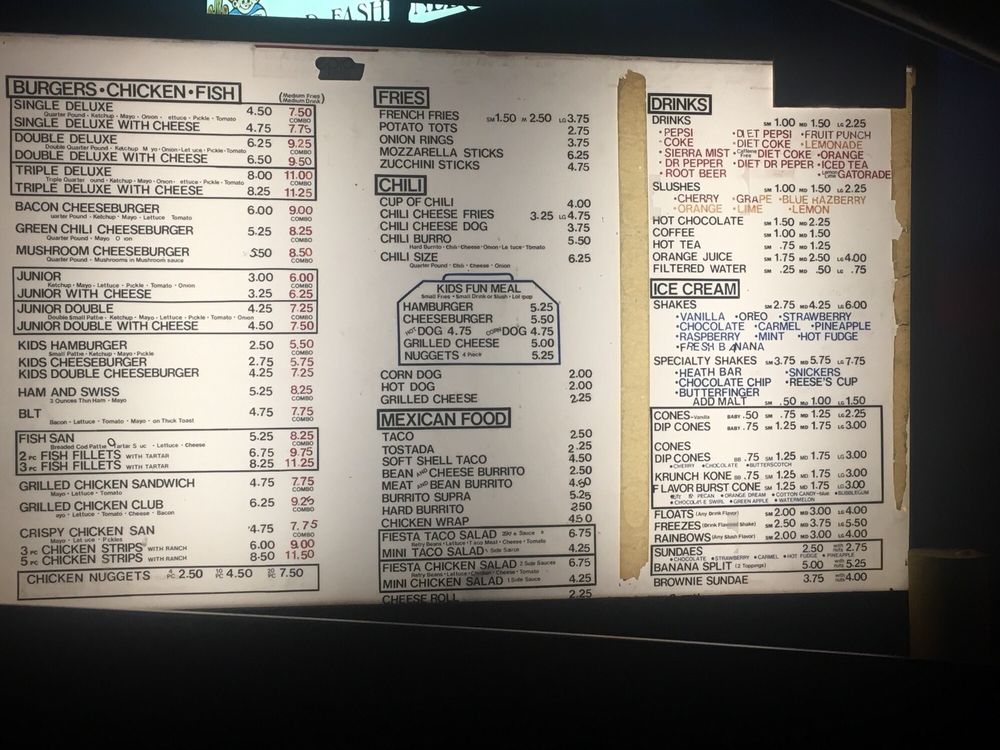 BURGERS • CHICKEN • FISH
(Medium Fries)
(Medium Drink)
SINGLE DELUXE 4.50 7.50
Quarter Pound - Ketchup - Mayo - Onion - ettuce - Pickle - Tomato COMBO
SINGLE DELUXE WITH CHEESE 4.75 7.75
DOUBLE DELUXE 6.25 9.25
COMBO
DOUBLE DELUXE WITH CHEESE 6.50 9.50
TRIPLE DELUXE 8.00 11.00
COMBO
TRIPLE DELUXE WITH CHEESE 8.25 11.25
BACON CHEESEBURGER 6.00 9.00
uarter Pound - Ketchup - Mayo - Lettuce Tomato COMBO
GREEN CHILI CHEESEBURGER 5.25 8.25
Quarter Pound - Mayo O ion COMBO
MUSHROOM CHEESEBURGER 5.50 8.50
Quarter Pound - Mushrooms in Mushroom sauce COMBO
JUNIOR 3.00 6.00
Ketchup - Mayo - Pickle - Tomato - Onion COMBO
JUNIOR WITH CHEESE 3.25 6.25
JUNIOR DOUBLE 4.25 7.25
Double Small Pattie - Ketchup - Mayo - Lettuce - Pickle - Tomato - Onion COMBO
JUNIOR DOUBLE WITH CHEESE 4.50 7.50
KIDS HAMBURGER 2.50 5.50
Small Pattie - Ketchup - Mayo - Pickle COMBO
KIDS CHEESEBURGER 2.75 5.75
KIDS DOUBLE CHEESEBURGER 4.25 7.25
HAM AND SWISS 5.25 8.25
3 Ounces Thin Ham - Mayo COMBO
BLT 4.75 7.75
Bacon - Lettuce - Tomato - Mayo - on Thick Toast COMBO
FISH SAN 5.25 8.25
Breaded Cod Pattie artar S uc - Lettuce - Cheese COMBO
2 PC FISH FILLETS WITH TARTAR 6.75 9.75
3 PC FISH FILLETS WITH TARTAR 8.25 11.25
GRILLED CHICKEN SANDWICH 4.75 7.75
Mayo - Lettuce - Tomato COMBO
GRILLED CHICKEN CLUB 6.25 9.25
ayo - Lettuce - Tomato - Cheese - Bacon COMBO
CRISPY CHICKEN SAN 4.75 7.75
Mayo - Let uce - Pickles
3 PC CHICKEN STRIPS WITH RANCH 6.00 9.00
5 PC CHICKEN STRIPS WITH RANCH 8.50 11.50
CHICKEN NUGGETS 4 PC 2.50 10 PC 4.50 20 PC 7.50
FRIES
FRENCH FRIES SM 1.50 M 2.50 LG 3.75
POTATO TOTS 2.75
ONION RINGS 3.75
MOZZARELLA STICKS 6.25
ZUCCHINI STICKS 4.75
CHILI
CUP OF CHILI 4.00
CHILI CHEESE FRIES 3.25 LG 4.75
CHILI CHEESE DOG 3.75
CHILI BURRO 5.50
Hard Burrito - Chili - Cheese - Onion - Le tuce - Tomato
CHILI SIZE 6.25
Quarter Pound - Chili - Cheese - Onion
KIDS FUN MEAL
Small Fries - Small Drink or Slush
HAMBURGER 5.25
CHEESEBURGER 5.50
HOT DOG 4.75 CORN DOG 4.75
GRILLED CHEESE 5.00
NUGGETS 4 Piece 5.25
CORN DOG 2.00
HOT DOG 2.00
GRILLED CHEESE 2.25
MEXICAN FOOD
TACO 2.50
TOSTADA 2.25
SOFT SHELL TACO 4.50
BEAN AND CHEESE BURRITO 2.50
MEAT AND BEAN BURRITO 4.50
BURRITO SUPRA 5.25
HARD BURRITO 2.50
CHICKEN WRAP 4.50
FIESTA TACO SALAD 6.75
Refry Beans - Lettuce - Taco Meat - Cheese - Tomato
MINI TACO SALAD 1 Side Sauce 4.25
FIESTA CHICKEN SALAD 2 Side Sauces 6.75
Refry Beans - Lettuce - Chicken - Cheese - Tomato
MINI CHICKEN SALAD 1 Side Sauce 4.25
CHEESE ROLL 2.25
DRINKS
DRINKS SM 1.00 MD 1.50 LG 2.25
•PEPSI •DIET PEPSI •FRUIT PUNCH
•COKE •DIET COKE •LEMONADE
•SIERRA MIST •Caffeine Free DIET COKE •ORANGE
•DR PEPPER •DIET DR PEPER •ICED TEA
•ROOT BEER GATORADE
SLUSHES SM 1.00 MD 1.50 LG 2.25
•CHERRY •GRAPE •BLUE RAZBERRY
•ORANGE •LIME •LEMON
HOT CHOCOLATE SM 1.50 MD 2.25
COFFEE SM 1.00 MD 1.50
HOT TEA SM .75 MD 1.25
ORANGE JUICE SM 1.75 MD 2.50 LG 4.00
FILTERED WATER SM .25 MD .50 LG .75
ICE CREAM
SHAKES SM 2.75 MD 4.25 LG 6.00
•VANILLA •OREO •STRAWBERRY
•CHOCOLATE •CARMEL •PINEAPPLE
•RASPBERRY •MINT •HOT FUDGE
•FRESH B ANANA
SPECIALTY SHAKES SM 3.75 MD 5.75 LG 7.75
•HEATH BAR •SNICKERS
•CHOCOLATE CHIP •REESE'S CUP
•BUTTERFINGER
ADD MALT SM .50 MD 1.00 LG 1.50
CONES-Vanilla BABY .50 SM .75 MD 1.25 LG 2.25
DIP CONES BABY .75 SM 1.25 MD 1.75 LG 3.00
CONES
DIP CONES BB .75 SM 1.25 MD 1.75 LG 3.00
•CHERRY •CHOCOLATE •BUTTERSCOTCH
KRUNCH KONE BB .75 SM 1.25 MD 1.75 LG 3.00
FLAVOR BURST CONE SM 1.25 MD 1.75 LG 3.00
PECAN •ORANGE DREAM •COTTON CANDY-blue •BUBBLEGUM
•GREEN APPLE •WATERMELON
FLOATS (Any Drink Flavor) SM 2.00 MD 3.00 LG 4.00
FREEZES (Drink Flavored Shake) SM 2.50 MD 3.75 LG 5.50
RAINBOWS (Any Slush Flavor) SM 2.00 MD 3.00 LG 4.00
SUNDAES 2.50 with nuts 2.75
•CHOCOLATE •STRAWBERRY •CARMEL •HOT FUDGE •PINEAPPLE
BANANA SPLIT (2 Toppings) 5.00 with nuts 5.25
BROWNIE SUNDAE 3.75 with nuts 4.00